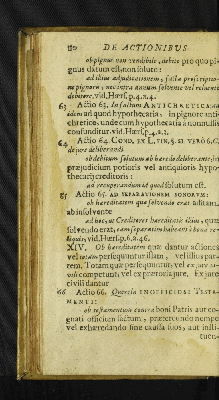 80 DE ACTIONIBUS
ob pignus non vendibile, debito pro quo pi-
gnus datum est, non solute:
ad illius adjudicationem, facta proscriptio-
ne pignore; necintra annum solvente vel reluente
debitore. vid. Hœrs. p. 4. 2. 4.
63 Actio 63. In factum ANTICHRETICARIA
idem ad quod hypothecaria: in pignore anti-
chretico: unde cum hypothecaria à nonnullis
confunditur. vid. Hœrs. p. 4. 2. 2.
64 Actio 64. COND. EX L. FIN. §. SI VERO 6. C.
de jure deliberandi
ob debitum solutum ab herede deliberante, in
præjudicium potioris vel antiquioris hypo-
thecarij creditoris:
ad recuperandum id quod solutum est.
65 Actio 65. AD SEPARATIONEM BONORUM:
ob hereditatem quæ solvendo erat aditam,
ab insolvente
ad hoc, ut Creditores hereditatis illius, quæ
solvendo erat, eam separatim habeant à bonis re-
liquis, vid. Hœrs. p. 6. 2. 46.
XIV. Ob hereditatem quæ dantur actiones
vel totam persequuntur illam, vel illius par-
tem. Totam quæ persequuntur, vel ex jure ci-
vili competunt, vel ex prætorio jure. Ex jure
civili dantur
66 Actio 66. Querela INOFFICIOSI TESTA-
MENTI:
ob testamentum contra boni Patris aut co-
gnati officium factum, prætereundo nempe
vel exhæredando sine causa suos, aut insti-
tuen-